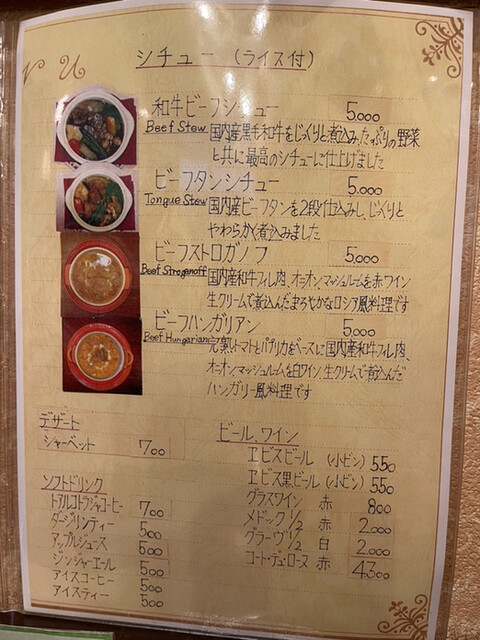 ＮＵ
シチュー (ライス付)
和牛ビーフシチュー 5,000
Beef Stew 国内産黒毛和牛をじっくりと煮込みたっぷりの野菜
と共に最高のシチューに仕上げました
ビーフタンシチュー 5,000
Tongue Stew 国内産ビーフタンを2段仕込みし、じっくりと
やわらかく煮込みました
ビーフストロガノフ 5,000
Beef Stroganoff 国内産和牛フィレ肉、オニオン、マッシュルームを赤ワイン
生クリームで煮込んだまろやかなロシア風料理です
ビーフハンガリアン 5,000
Beef Hungarian 完熟トマトとパプリカをベースに国内産和牛フィレ肉、
オニオン、マッシュルームを白ワイン、生クリームで煮込んだ
ハンガリー風料理です
デザート
シャーベット 700
ソフトドリンク
トアルコトラジャコーヒー 700
ダージリンティー 500
アップルジュース 500
ジンジャーエール 500
アイスコーヒー 500
アイスティー 500
ビール、ワイン
ヱビスビール (小ビン) 550
ヱビス黒ビール (小ビン) 550
グラスワイン 赤 800
メドック1/2 赤 2,000
グラーヴ1/2 白 2,000
コート・デュ・ローヌ 赤 4,300